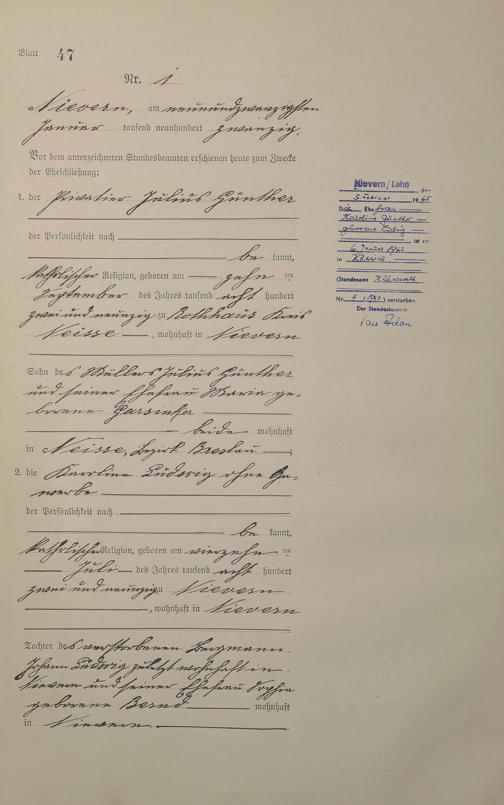 Blatt 47
Nr. 1
Nievern, am neunundzwanzigsten
Januar tausend neunhundert zwanzig.
Vor dem unterzeichneten Standesbeamten erschienen heute zum Zwecke
der Eheschließung:
1. der Privatier Julius Günther
der Persönlichkeit nach
be kannt,
katholischer Religion, geboren am zehn ten
September des Jahres tausend acht hundert
zwei und neunzig zu Rothhaus Kreis
Neisse, wohnhaft in Nievern
Sohn des Müllers Julius Günther
und seiner Ehefrau Maria ge-
borene
beide wohnhaft
in Neisse, Bezirk Breslau
2. die Karoline Ludwig ohne Ge-
werbe
der Persönlichkeit nach
be kannt,
katholische Religion, geboren am vierzehn ten
Juli des Jahres tausend acht hundert
zwei und neunzig zu Nievern
, wohnhaft in Nievern
Tochter des verstorbenen Bergmann
Johann Ludwig zuletzt wohnhaft in
Nievern und seiner Ehefrau Sophia
geborene Bernd wohnhaft
in Nievern
Nievern/Lahn den
Februar 19
Die Ehefrau
Karoline Günther
geborene Ludwig
ist am
6. Januar
in
(Standesamt
Nr. 4 verstorben.
Der Standesbeamte